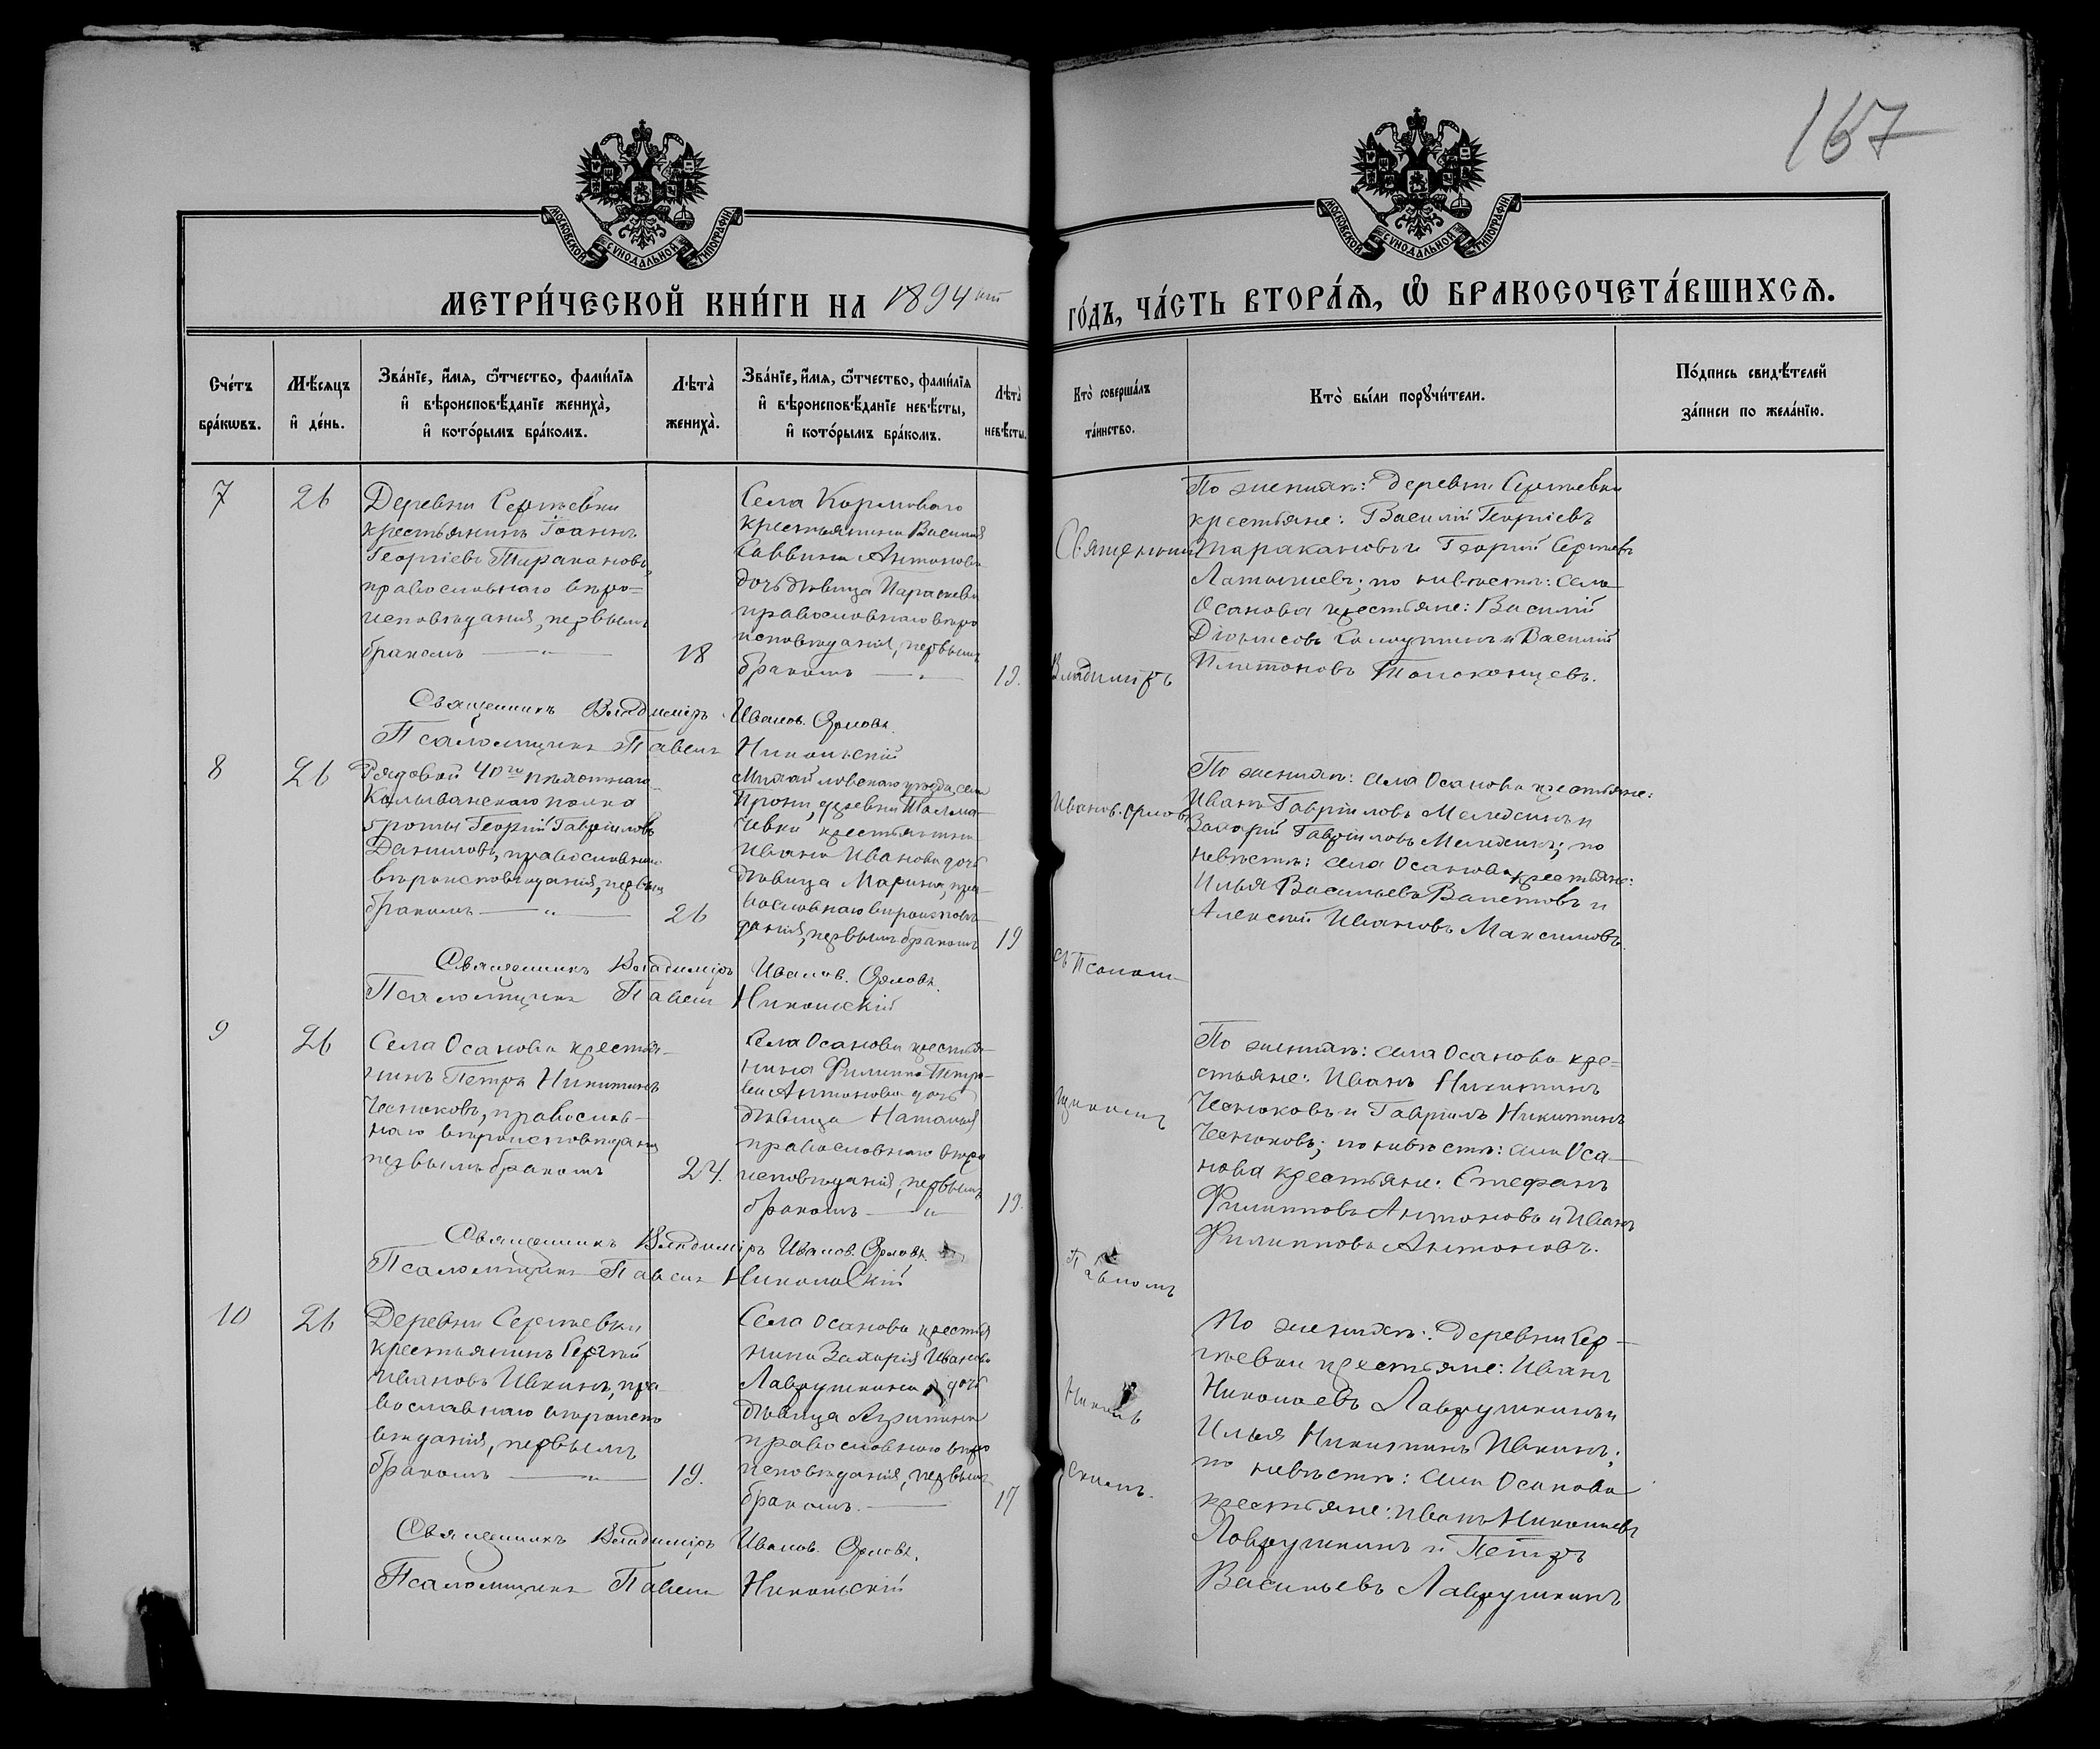 167
МОСКОВСКОЙ СѴНОДАЛЬНОЙ ТИПОГРАФІИ
МОСКОВСКОЙ СѴНОДАЛЬНОЙ ТИПОГРАФІИ
МЕТРИ́ЧЕСКОЙ КНИ́ГИ НА 1894 ый
ГО́ДЪ, ЧА́СТЬ ВТОРА́Ѧ, Ѽ БРАКОСОЧЕТА́ВШИХСѦ.
Сче́тъ
бра́кωвъ.
Мѣ́сяцъ
и҆ де́нь.
Зва́нїе, и҆́мя, ѻ҆́тчество, фами́лїя
и҆ вѣроисповѣ́данїе жениха̀,
и҆ кото́рымъ бра́комъ.
Лѣ́та
жениха̀.
Зва́нїе, и҆́мя, ѻ҆́тчество, фами́лїя
и҆ вѣроисповѣ́данїе невѣ́сты,
и҆ кото́рымъ бра́комъ.
Лѣ́та
невѣ́сты.
Кто̀ соверша́лъ
та́инство.
Кто̀ бы́ли порꙋчи́тели.
По́дпись свидѣ́телей
за́писи по жела́нїю.
7
26
Деревни Сергѣевки
крестьянинъ Іоаннъ
Георгіевъ Тараканов,
православнаго вѣро-
исповѣданія, первымъ
бракомъ — „ —
18
Села Кормоваго
крестьянина Василія
Саввина Антонова
дочь дѣвица Параскева
православнаго вѣро
исповѣданія, первымъ
бракомъ — „ —
19.
Священник
Владиміръ
Иванов. Орлов
съ Псалом-
щикомъ
Павломъ
Николь
скимъ.
По женихѣ: деревни Сергѣевки
крестьяне: Василій Георгіевъ
Таракановъ и Георгій Сергѣевъ
Латышевъ; по невѣстѣ: села
Осанова крестьяне: Василій
Діонисовъ и Василій
Платоновъ Толоконцевъ.
Священникъ Владиміръ Иванов. Орловъ.
Псаломщикъ Павелъ Никольскій
8
26
Рядовой 40го пѣхотнаго
Колыванскаго полка
роты Георгій Гавріиловъ
Даниловъ, православнаго
вѣроисповѣданія, первым
бракомъ — „ —
26
Михайловскаго уѣзда, села
Прони, деревни
крестьянина
Ивана Иванова дочь
дѣвица Марина, пра-
вославнаго вѣроисповѣ-
данія, первымъ бракомъ
19
По женихѣ: села Осанова крестьяне:
Иванъ Гавріиловъ Мелехинъ и
Захарій Гавріиловъ Мелехинъ; по
невѣстѣ: села Осанова крестьяне:
Илья Васильевъ и
Алексѣй Ивановъ Максимовъ.
Священникъ Владиміръ Иванов. Орловъ.
Псаломщикъ Павелъ Никольскій
9
26
Села Осанова крестья-
нинъ Петръ Никитинъ
Чесноковъ, православ-
наго вѣроисповѣданія
первымъ бракомъ
24.
Села Осанова крестья-
нина Филиппа Петро-
ва Антонова дочь
дѣвица Наталія
православнаго вѣро
исповѣданія, первымъ
бракомъ — „ —
19.
По женихѣ: села Осанова кре-
стьяне: Иванъ Никитинъ
Чесноковъ и Гавріилъ Никитинъ
Чесноковъ; по невѣстѣ: села Оса-
нова крестьяне: Стефанъ
Филипповъ Антоновъ и Иванъ
Филипповъ Антоновъ.
Священникъ Владиміръ Иванов. Орловъ.
Псаломщикъ Павелъ Никольскій
10
26
Деревни Сергѣевки
крестьянинъ Сергѣй
Ивановъ Ивкинъ, пра
вославнаго вѣроиспо
вѣданія, первымъ
бракомъ — „ —
19.
Села Осанова крестья
нина Захарія Иванова
Лаврушкина дочь
дѣвица Агрипина
православнаго вѣро
исповѣданія, первымъ
бракомъ. —
17
По женихѣ: деревни Сер-
гѣевки крестьяне: Иванъ
Николаевъ Лаврушкинъ и
Илья Никитинъ Ивкинъ;
по невѣстѣ: села Осанова
крестьяне: Иванъ Николаевъ
Лаврушкинъ и Петръ
Васильевъ Лаврушкинъ
Священникъ Владиміръ Иванов. Орловъ.
Псаломщикъ Павелъ Никольскій